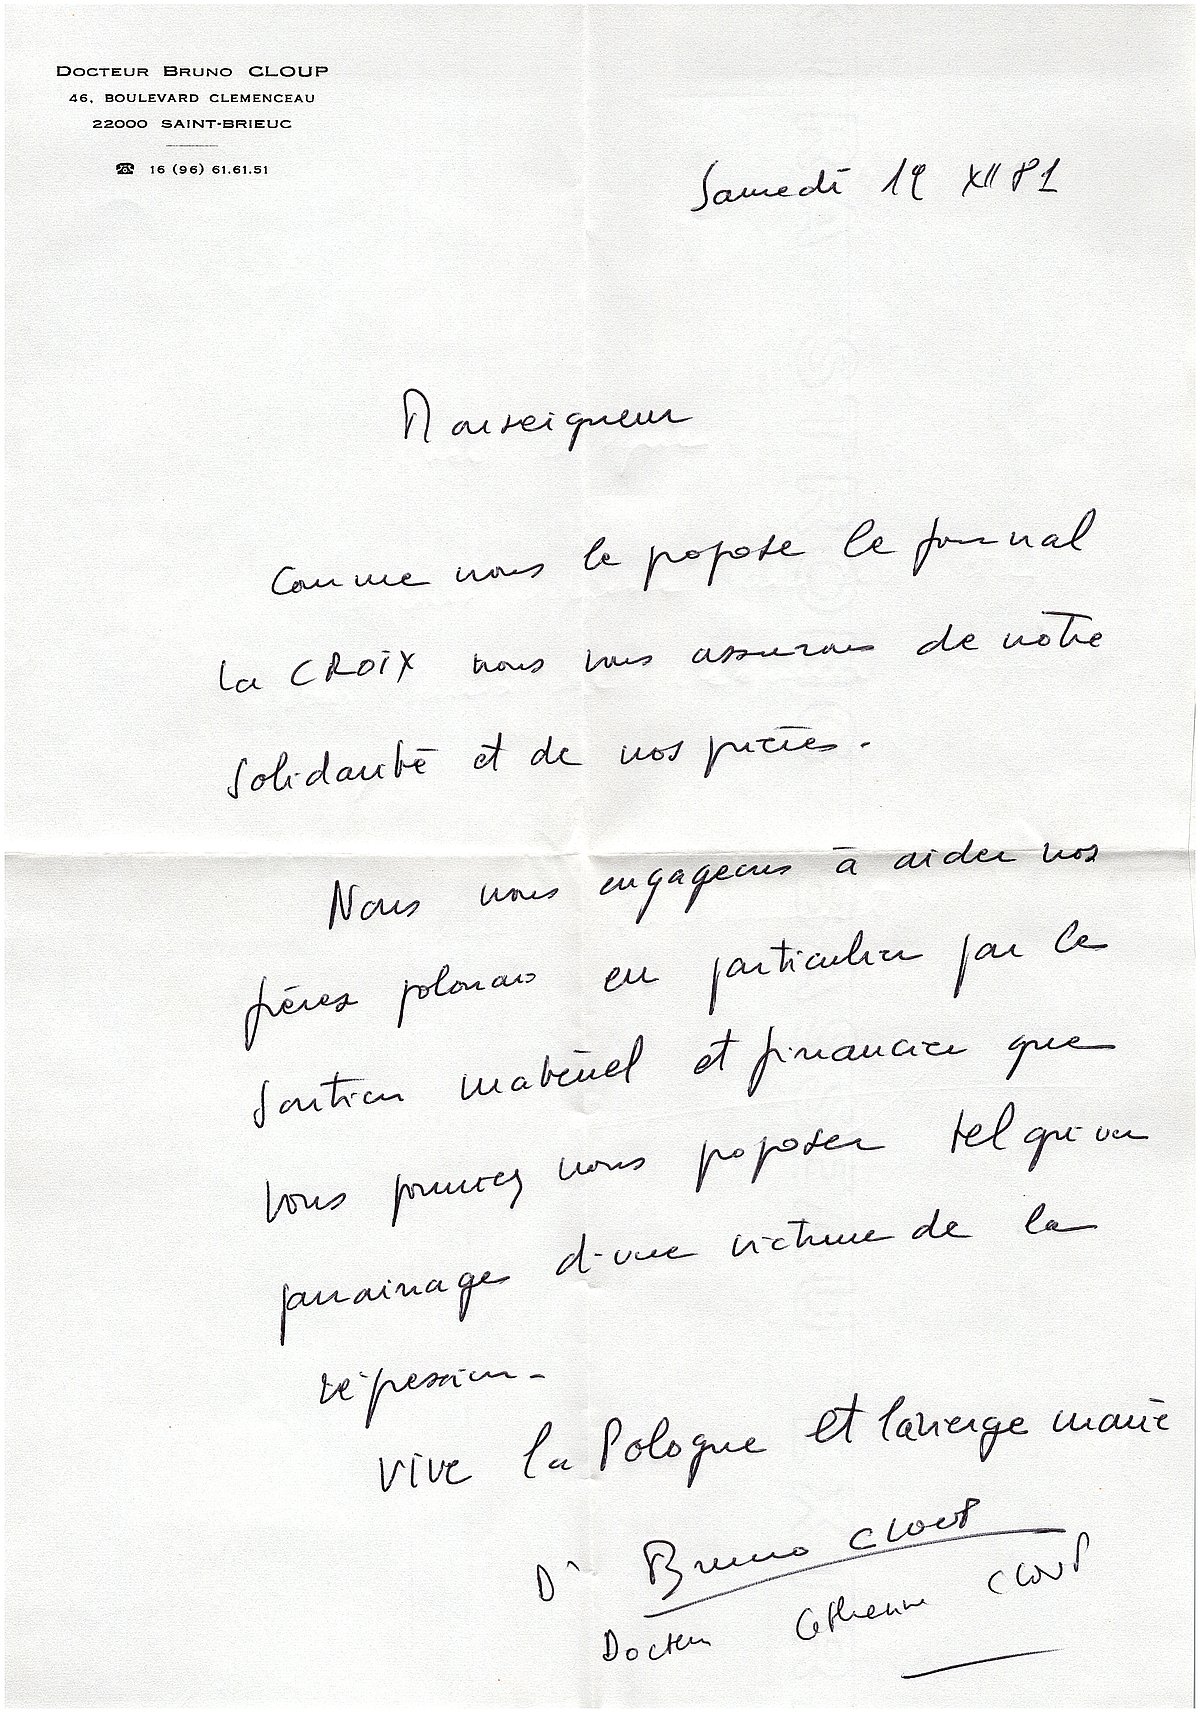 DOCTEUR BRUNO CLOUP
46, BOULEVARD CLEMENCEAU
22000 SAINT-BRIEUC
☎ 16 (96) 61.61.51
Samedi 19 XII 81
Monseigneur
Comme nous le propose le journal
la CROIX nous vous assurons de notre
solidarité et de nos prières.
Nous nous engageons à aider nos
frères polonais en particulier par le
soutien matériel et financier que
vous pourriez nous proposer tel qu'un
parrainage d'une victime de la
répression.
Vive la Pologne et la vierge marie
Dr Bruno CLOUP
Docteur Catherine CLOUP